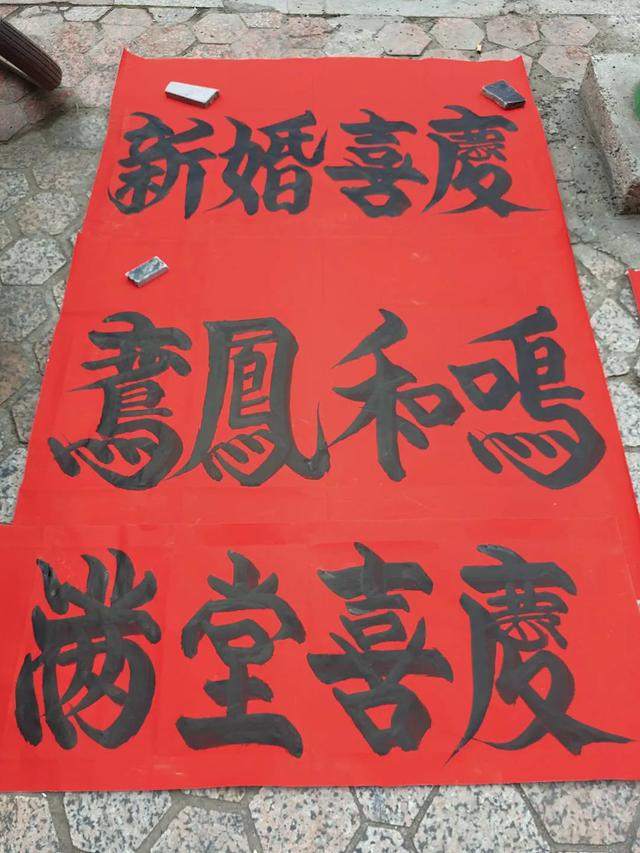 新婚喜慶
鵉鳳和鳴
满堂喜慶